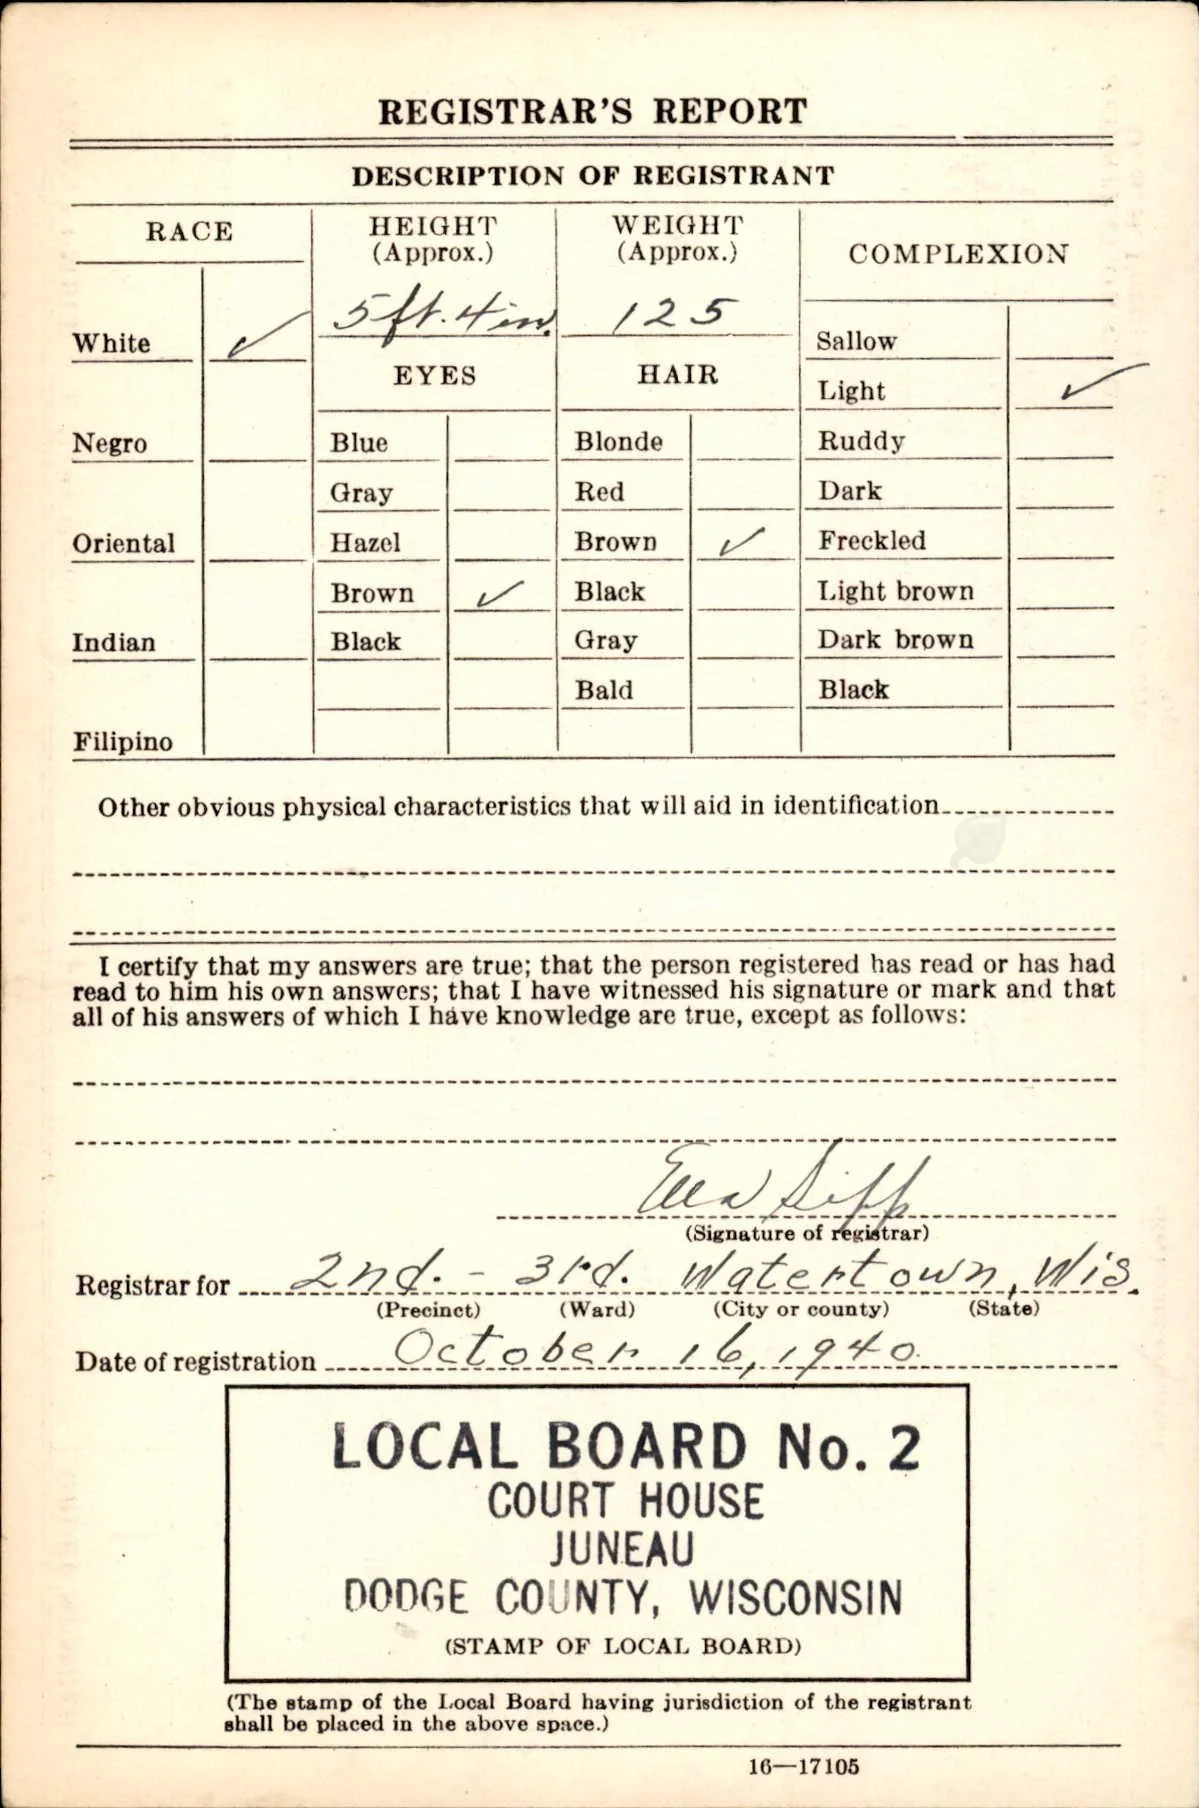 REGISTRAR'S REPORT
DESCRIPTION OF REGISTRANT
RACE
HEIGHT
(Approx.)
WEIGHT
(Approx.)
COMPLEXION
5 ft. 4 in.
125
White ✓
Sallow
EYES
HAIR
Light ✓
Negro
Blue
Blonde
Ruddy
Gray
Red
Dark
Oriental
Hazel
Brown ✓
Freckled
Brown ✓
Black
Light brown
Indian
Black
Gray
Dark brown
Bald
Black
Filipino
Other obvious physical characteristics that will aid in identification
I certify that my answers are true; that the person registered has read or has had
read to him his own answers; that I have witnessed his signature or mark and that
all of his answers of which I have knowledge are true, except as follows:
Ella Sipp
(Signature of registrar)
Registrar for 2nd. - 3rd. Watertown, Wis.
(Precinct) (Ward) (City or county) (State)
Date of registration October 16, 1940.
LOCAL BOARD No. 2
COURT HOUSE
JUNEAU
DODGE COUNTY, WISCONSIN
(STAMP OF LOCAL BOARD)
(The stamp of the Local Board having jurisdiction of the registrant
shall be placed in the above space.)
16—17105